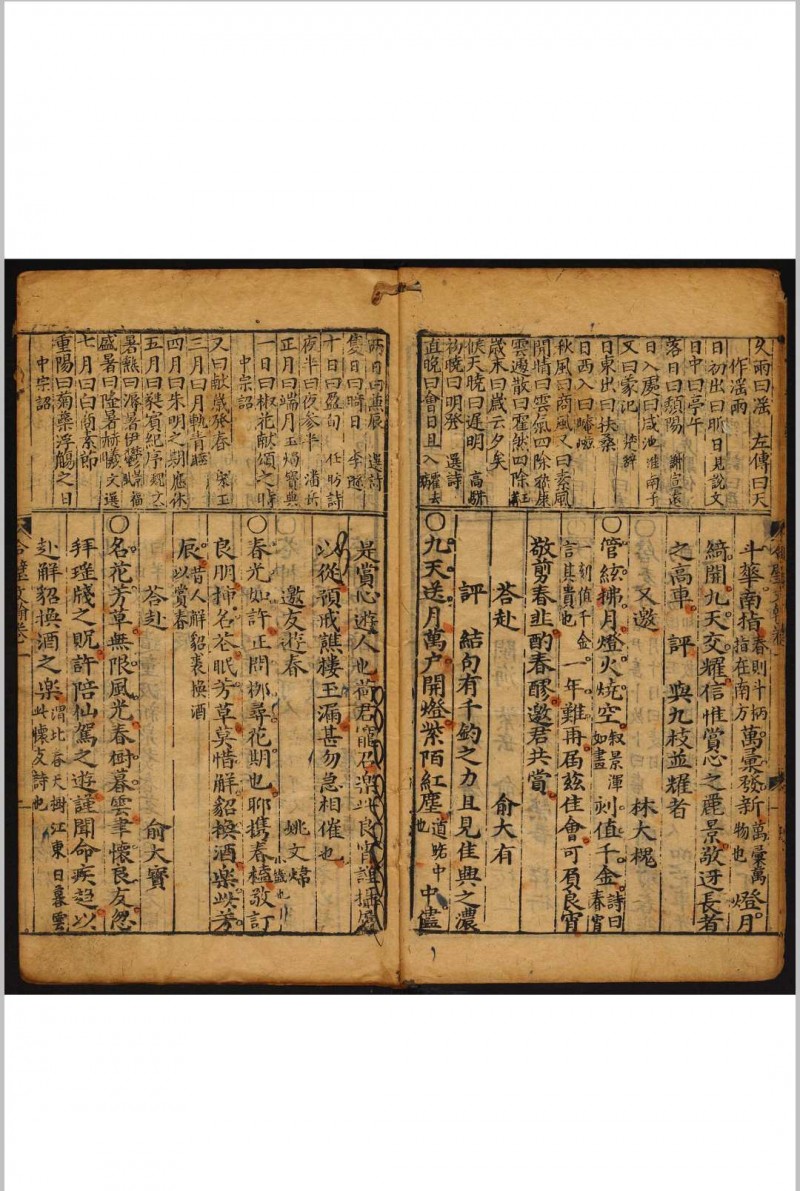 久雨曰滛　左傳曰天
作滛雨
日初出曰昕日見說文
日中曰亭午
落日曰頽陽　謝宣遠
日入處曰咸池淮南子
又曰蒙汜　楚辭
日東出曰扶桑
日西入曰崦嵫
秋風曰商風又曰素風
開晴曰雲氣四除嵇康
雲邊散曰霍然四除
歲末曰歲云夕矣
候天曉曰遲明　高
初曉曰明發　選詩
直晚曰會日且入
斗華南指春則斗柄指在南方萬彙發新萬彙萬物也登月
綺開九天交耀信惟賞心之麗景敬迓長者
之高車　評　與九枝並耀者
又邀　林大槐
〇管絃拂月燈火燒空叙景渾如畫刻值千金詩曰春宵
一刻值千金言其貴也一年難再屆兹佳會可負良宵
敬剪春韭酌春醪邀君共賞
荅赴　俞大有
評　結句有千鈞之力且見佳興之濃
〇九天送月萬户開燈紫陌紅塵道路中也中儘
兩日曰兼辰　選詩
隻日曰畸日　李
十日曰盈旬　任昉詩
夜半曰夜參半　潘岳
正月曰端月玉燭寶典
一日曰椒花獻頌之時
中宗詔
又曰獻歲發春　宋玉
三月曰月軌青
四月曰朱明之期應休
五月曰蕤賓紀序魏文
暑熱曰溽暑伊鬱
盛暑曰隆暑赫曦文選
七月曰白商素節
重陽曰菊蘂浮觴之日
中宗詔
是賞心遊人也荷君寵召樂此良宵謹攝
以從預戒譙樓玉漏甚勿急相催也
邀友遊春　姚文
〇春光如許正問柳尋花期也聊携春榼敬訂
良朋挿名花眠芳草莫惜解貂換酒樂此芳
辰昔人解貂裘換酒以賞春
荅赴　俞大寳
〇名花芳草無限風光春樹暮雲聿懷良友忽
拜瑶牋之貺許陪仙駕之遊謹聞命疾趋以
赴解貂換酒之樂渭北春天樹江東日暮雲此懷友詩也